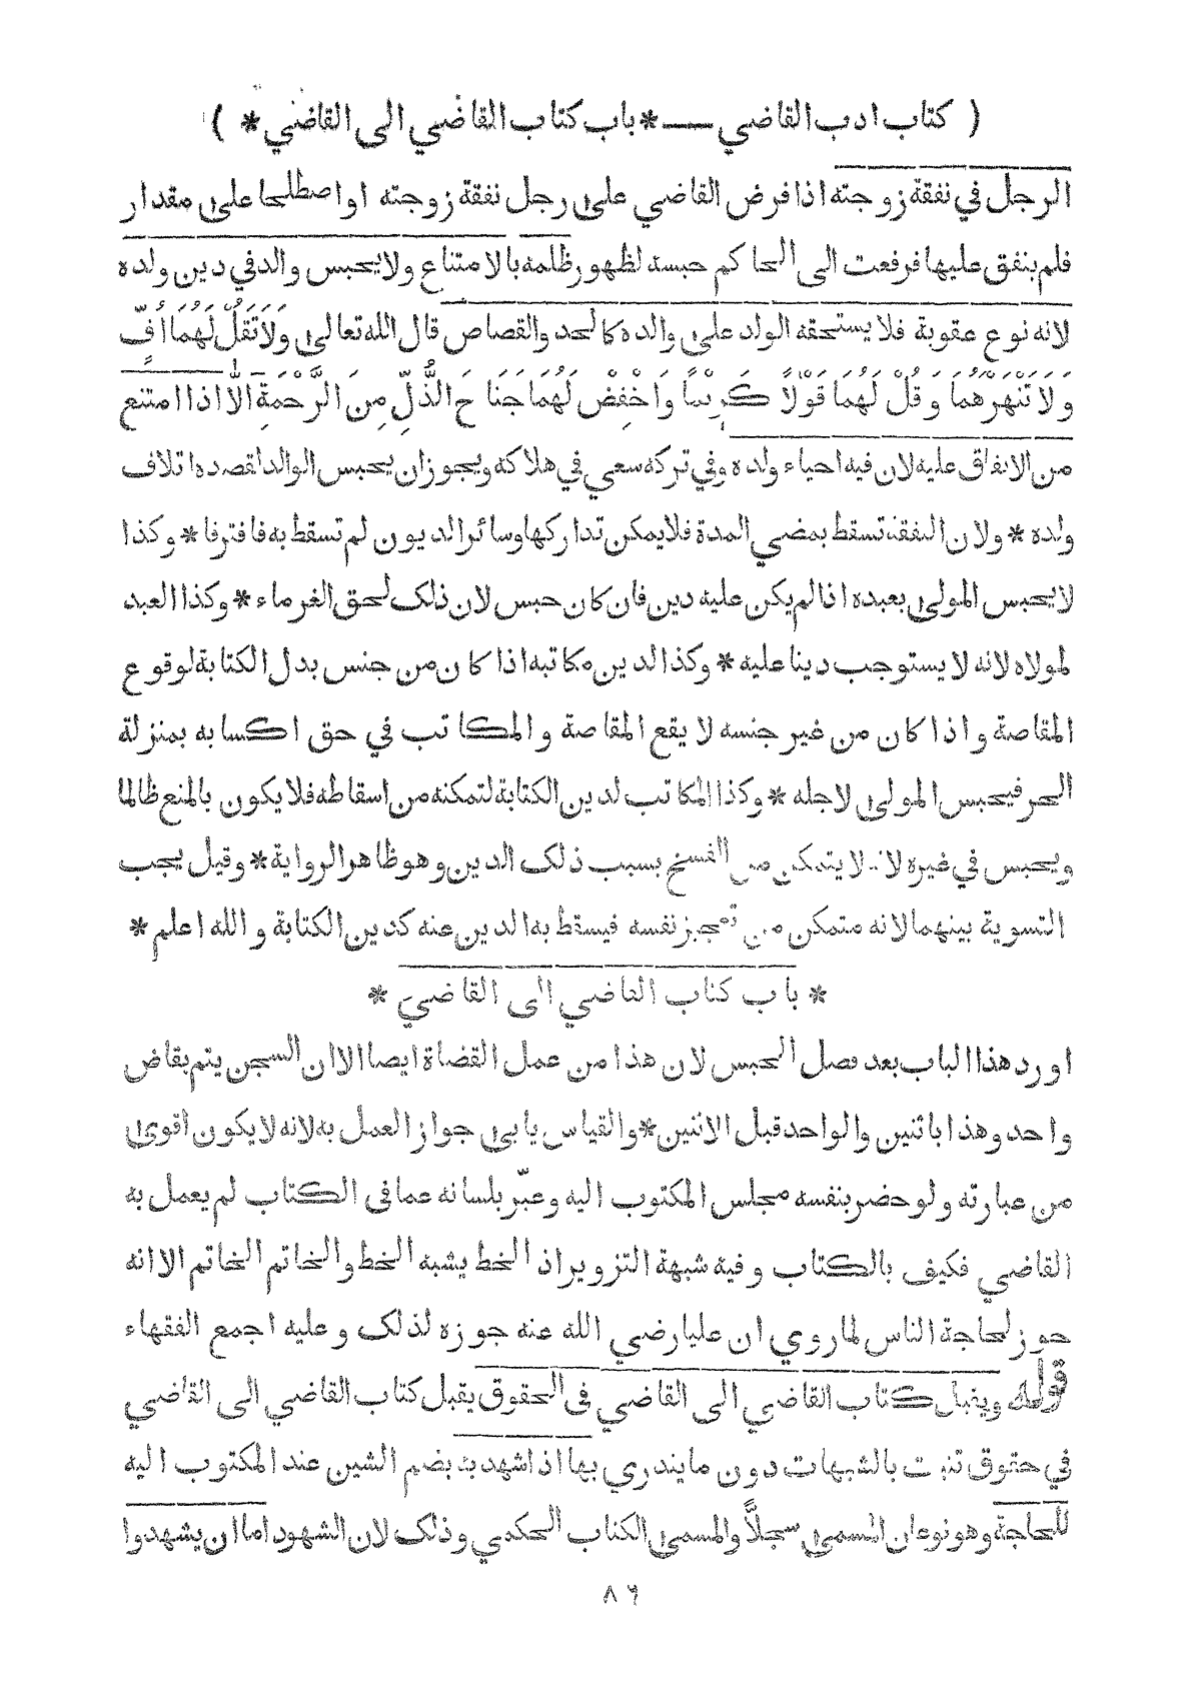 ( كتاب ادب القاضي — *باب كتاب القاضي الى القاضي* )
الرجل في نفقة زوجته اذا فرض القاضي على رجل نفقة زوجته او اصطلحا على مقدار
فلم ينفق عليها فرفعت الى الحاكم حبسه لظهور ظلمه بالامتناع ولا يحبس والد في دين ولده
لانه نوع عقوبة فلا يستحقه الولد على والده كالحد والقصاص قال الله تعالى وَلَا تَقُلْ لَهُمَا اُفٍّ
وَلَا تَنْهَرْهُمَا وَقُلْ لَهُمَا قَوْلًا كَرِيْمًا وَاخْفِضْ لَهُمَا جَنَاحَ الذُّلِّ مِنَ الرَّحْمَةِ الّا اذا امتنع
من الانفاق عليه لان فيه احياء ولده وفي تركه سعي في هلاكه ويجوز ان يحبس الوالد لقصده اتلاف
ولده * ولان النفقة تسقط بمضي المدة فلا يمكن تداركها وسائر الديون لم تسقط به فافترقا * وكذا
لا يحبس المولى بعبده اذا لم يكن عليه دين فان كان حبس لان ذلك لحق الغرماء * وكذا العبد
لمولاه لانه لا يستوجب دينا عليه * وكذا لدين مكاتبه اذا كان من جنس بدل الكتابة لوقوع
المقاصة واذا كان من غير جنسه لا يقع المقاصة والمكاتب في حق اكسابه بمنزلة
الحر فيحبس المولى لاجله * وكذا المكاتب لدين الكتابة لتمكنه من اسقاطه فلا يكون بالمنع ظالما
ويحبس في غيره لانه لا يتمكن من الفسخ بسبب ذلك الدين وهو ظاهر الرواية * وقيل يجب
التسوية بينهما لانه متمكن من تعجيز نفسه فيسقط به الدين عنه كدين الكتابة والله اعلم *
* باب كتاب القاضي الى القاضي *
اورد هذا الباب بعد فصل الحبس لان هذا من عمل القضاة ايضا الا ان السجن يتم بقاض
واحد وهذا باثنين والواحد قبل الاثنين * والقياس يابى جواز العمل به لانه لا يكون اقوى
من عبارته ولو حضر بنفسه مجلس المكتوب اليه وعبّر بلسانه عما فى الكتاب لم يعمل به
القاضي فكيف بالكتاب وفيه شبهة التزوير اذ الخط يشبه الخط والخاتم الخاتم الا انه
جوز لحاجة الناس لما روي ان عليا رضي الله عنه جوزه لذلك وعليه اجمع الفقهاء
قوله ويقبل كتاب القاضي الى القاضي فى الحقوق يقبل كتاب القاضي الى القاضي
في حقوق تثبت بالشبهات دون ما يندرئ بها اذا شهد به بضم الشين عند المكتوب اليه
للحاجة وهو نوعان المسمى سجلاًّ والمسمى الكتاب الحكمي وذلك لان الشهود اما ان يشهدوا
٨٦